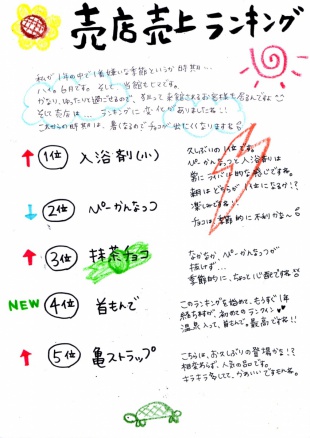 売店売上ランキング
私が1年の中で1番嫌いな季節というか時期…
ハイ。6月です。そして当館もヒマです。
かなり、ゆったりと過ごせるので、狙って来館されるお客様も居るんですよ
そして売店は…ランキングに変化がありました!!
これからの時期は、暑くなるのでチョコが出たくなりますね
↑ 1位 入浴剤(小)
久しぶりの1位です。
ぺーかんなっつと入浴剤は
常にライバル的な感じですね。
次回はどちらが1位になるか!?
楽しみです!!
チョコは季節的に不利かな〜
↓ 2位 ぺーかんなっつ
↑ 3位 抹茶チョコ
なかなか、ぺーかんなっつが
抜けず…
季節的に、ちょっと心配ですね
NEW 4位 首もんで
このランキングを始めて、もうすぐ1年
経ちますが、初めてのランクイン♥♥
温泉入って、首もんで。最高ですね!!
↑ 5位 亀ストラップ
こちらは、お久しぶりの登場かな!?
相変わらず、人気の品です。
キラキラ多くして、かわいいですもんね。